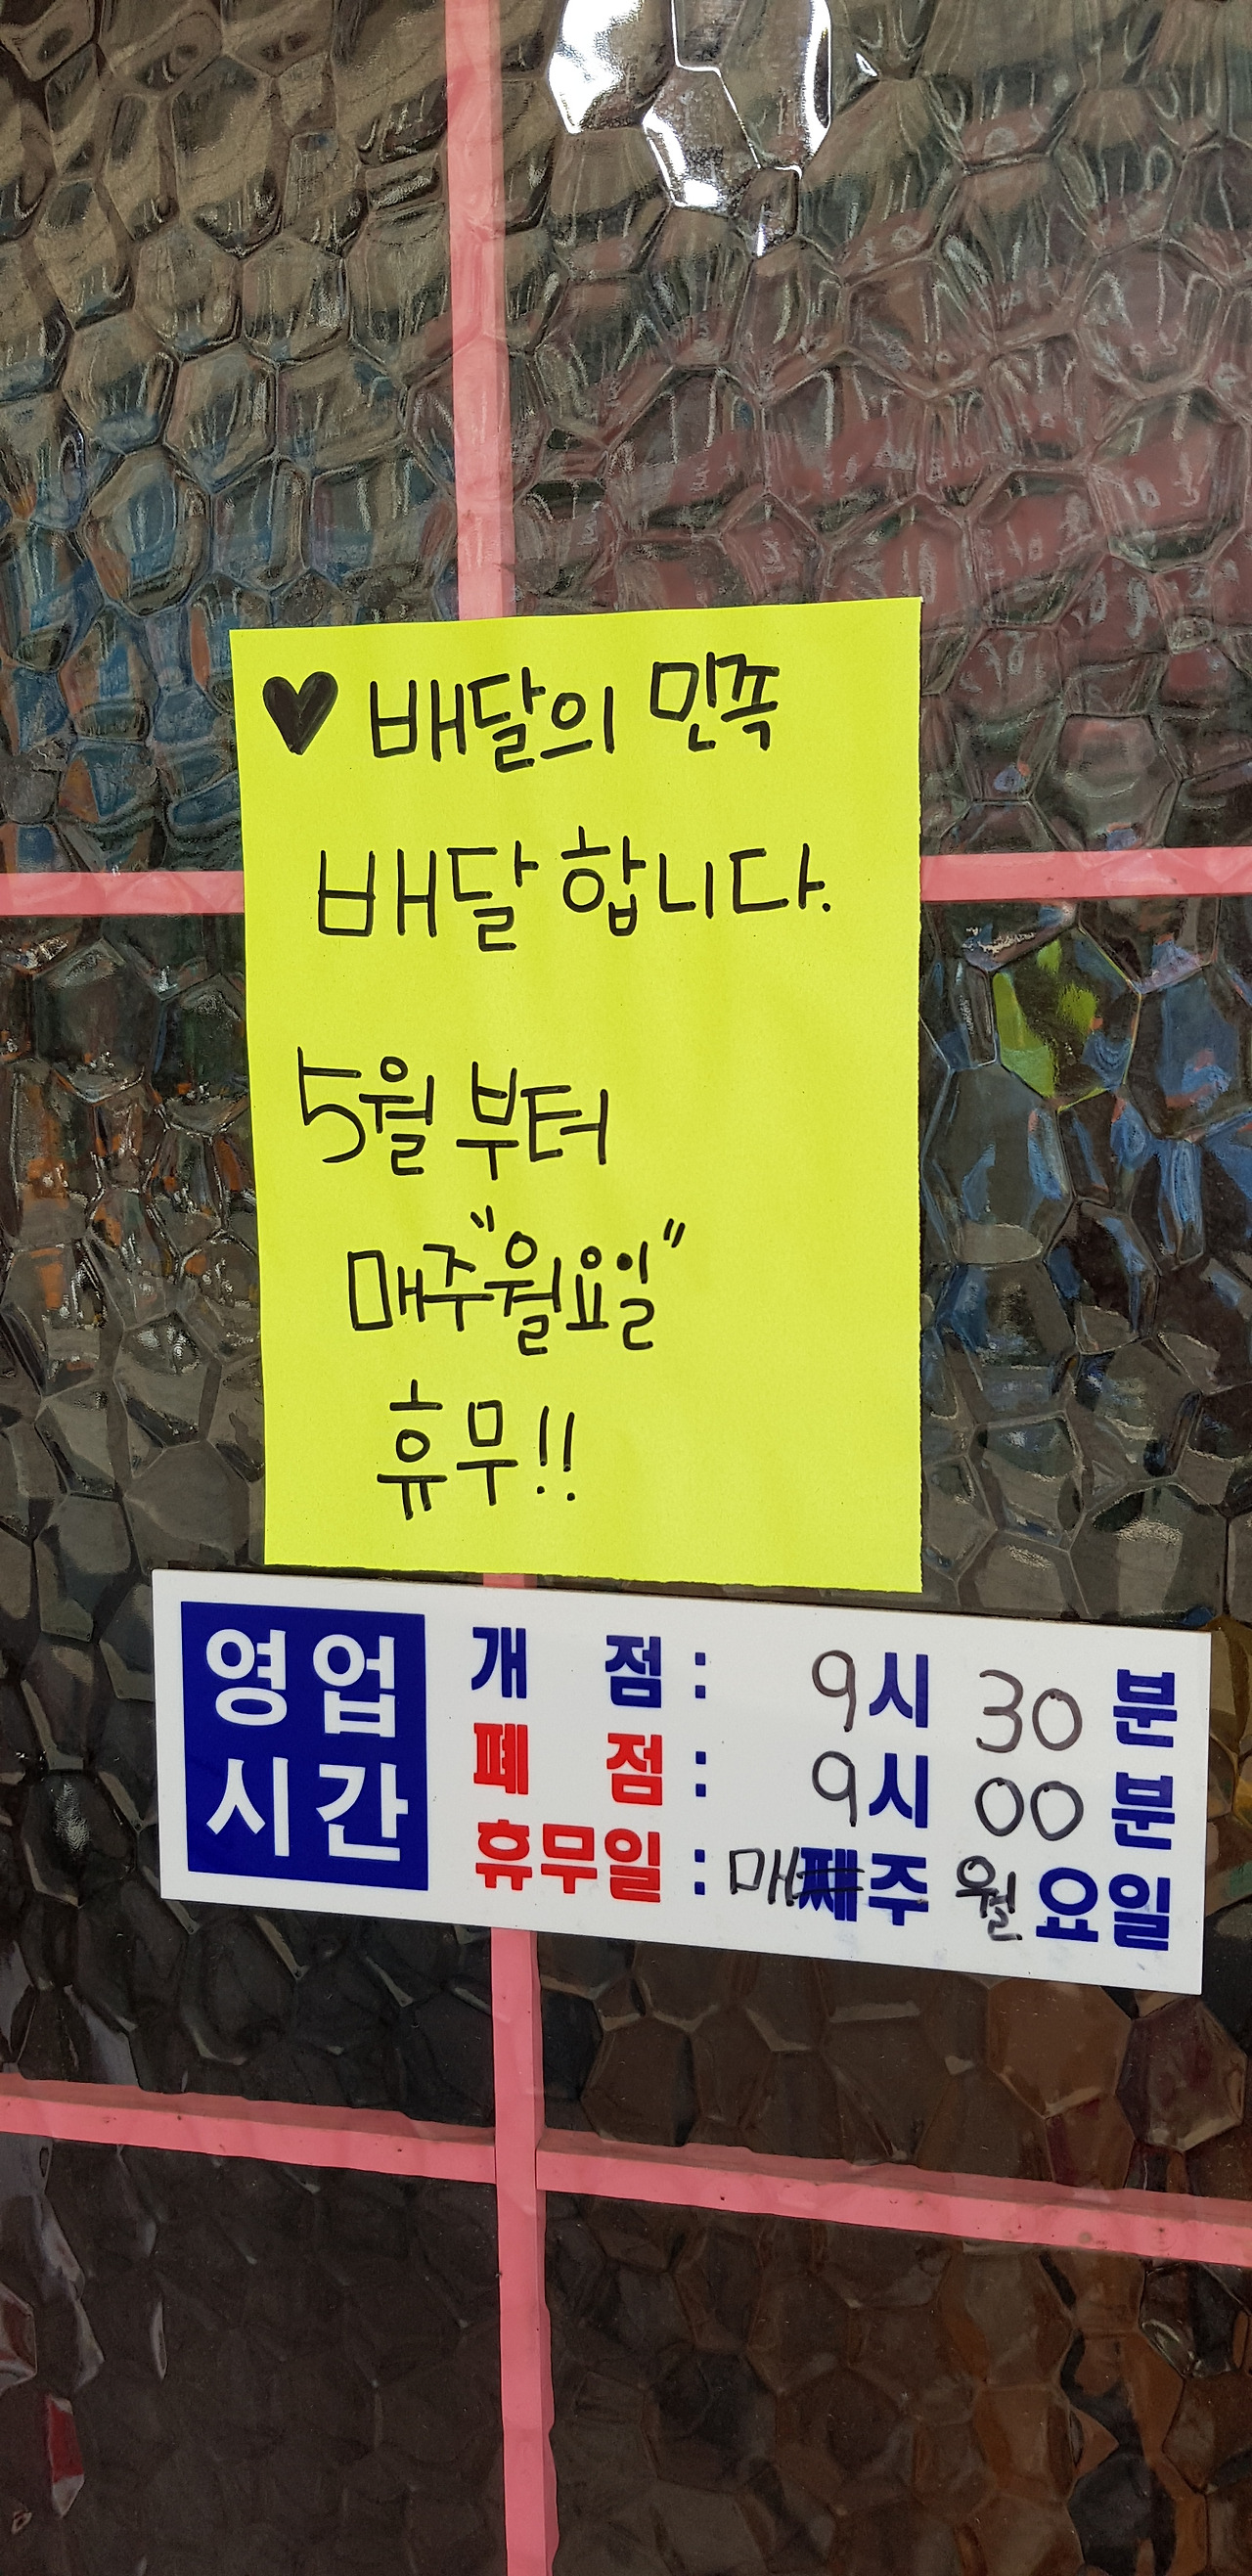 ♥ 배달의 민족
배달 합니다.
5월 부터
매주 "월요일"
휴무!!
영업시간
개 점 : 9시 30분
폐 점 : 9시 00분
휴무일 : 매째주 월요일